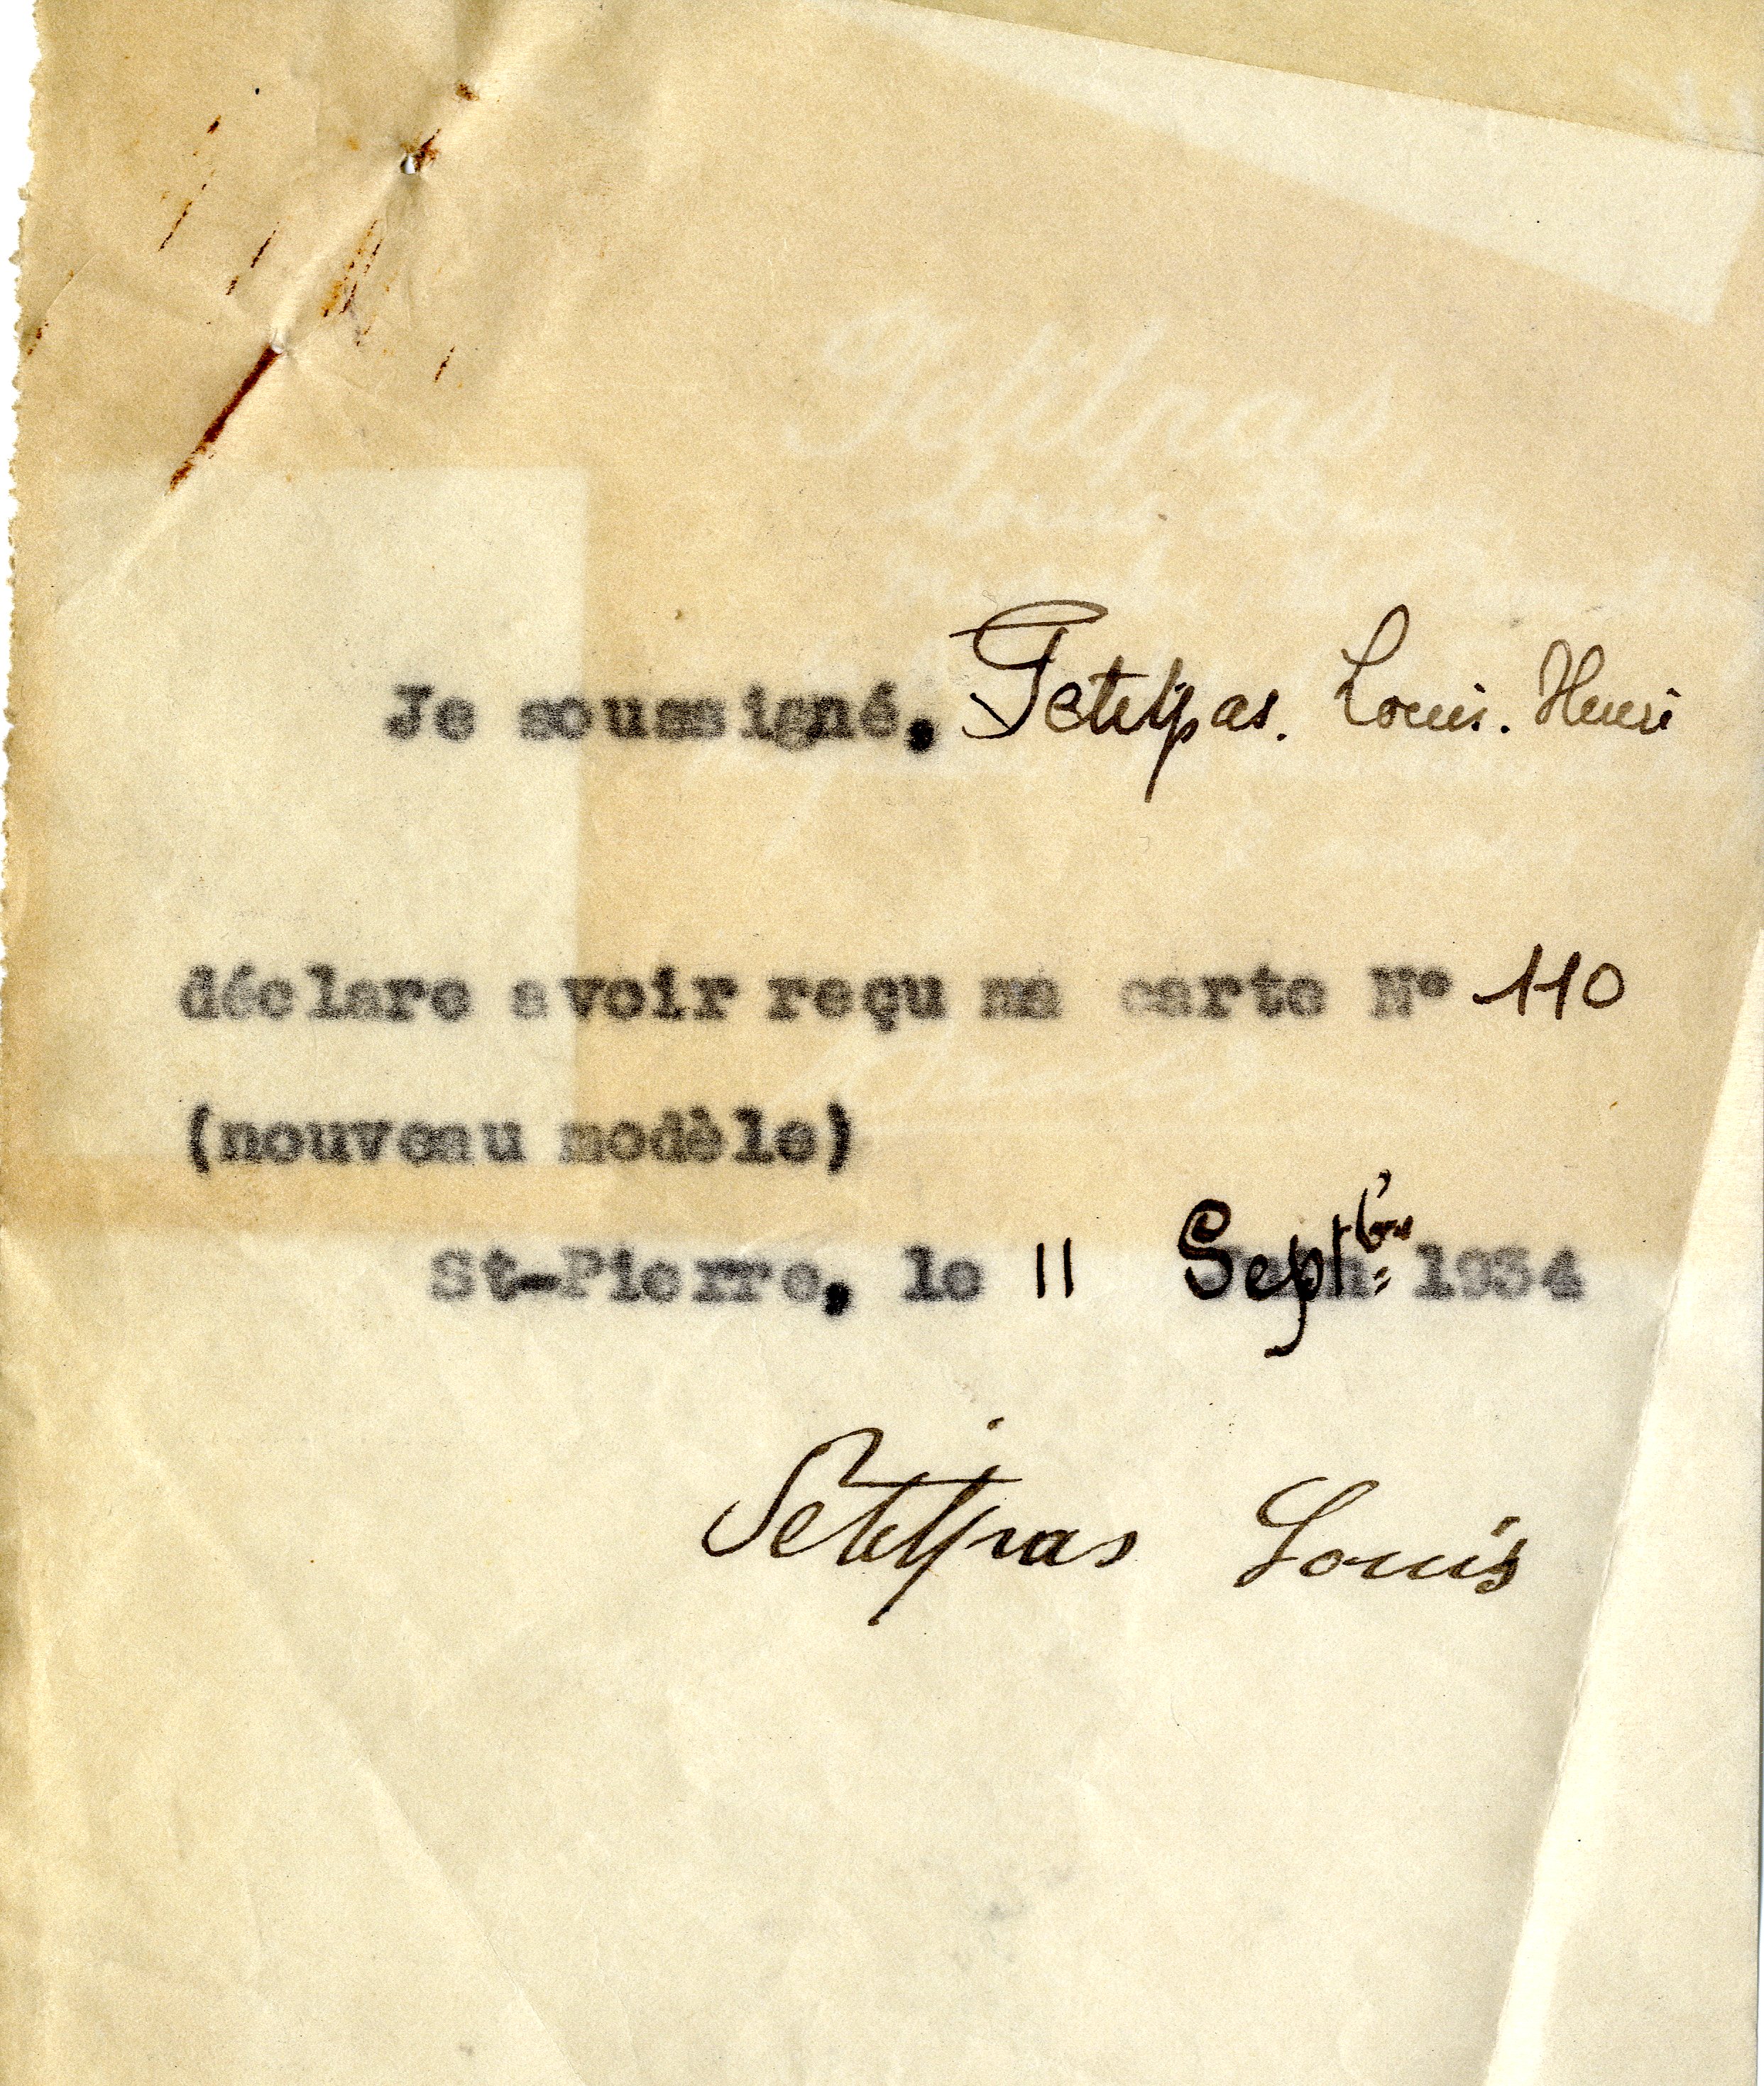 Petitpas
Je soussigné, Petitpas. Louis. Henri
déclare avoir reçu ma carte N° 110
(nouveau modèle)
St-Pierre, le 11 Septbre 1934
Petitpas Louis